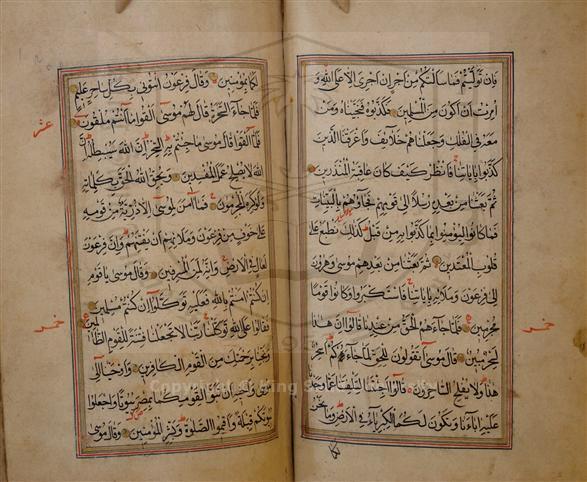 فان توليتم فما سالتكم من اجر ان اجرى الا على الله و
امرت ان اكون من المسلمين فكذبوه فنجيناه ومن
معه فى الفلك وجعلناهم خلايف واغرقنا الذين
كذبوا باياتنا فانظر كيف كان عاقبة المنذرين
ثم بعثنا من بعده رسلا الى قومهم فجاؤهم بالبينات
فما كانوا ليؤمنوا بما كذبوا به من قبل كذلك نطبع على
قلوب المعتدين ثم بعثنا من بعدهم موسى وهرون
الى فرعون وملائه باياتنا فاستكبروا وكانوا قوما
مجرمين فلما جاءهم الحق من عندنا قالوا ان هذا
لسحر مبين قال موسى اتقولون للحق لما جاءكم اسحر
هذا ولا يفلح الساحرون قالوا اجئتنا لتلفتنا عما وجدنا
عليه اباءنا وتكون لكما الكبرياء فى الارض وما نحن
لكما
لكما بمؤمنين وقال فرعون ائتونى بكل ساحر عليم
فلما جاء السحرة قال لهم موسى القوا ما انتم ملقون
فلما القوا قال موسى ما جئتم به السحر ان الله سيبطله ان
الله لا يصلح عمل المفسدين ويحق الله الحق بكلماته
ولو كره المجرمون فما امن لموسى الا ذرية من قومه
على خوف من فرعون وملائهم ان يفتنهم وان فرعون
لعال فى الارض وانه لمن المسرفين وقال موسى يا قوم
ان كنتم امنتم بالله فعليه توكلوا ان كنتم مسلمين
فقالوا على الله توكلنا ربنا لا تجعلنا فتنة للقوم الظالمين
ونجنا برحمتك من القوم الكافرين واوحينا الى
موسى واخيه ان تبوا لقومكما بمصر بيوتا واجعلوا
بيوتكم قبلة واقيموا الصلوة وبشر المؤمنين وقال موسى
عشر
خمس
خمس